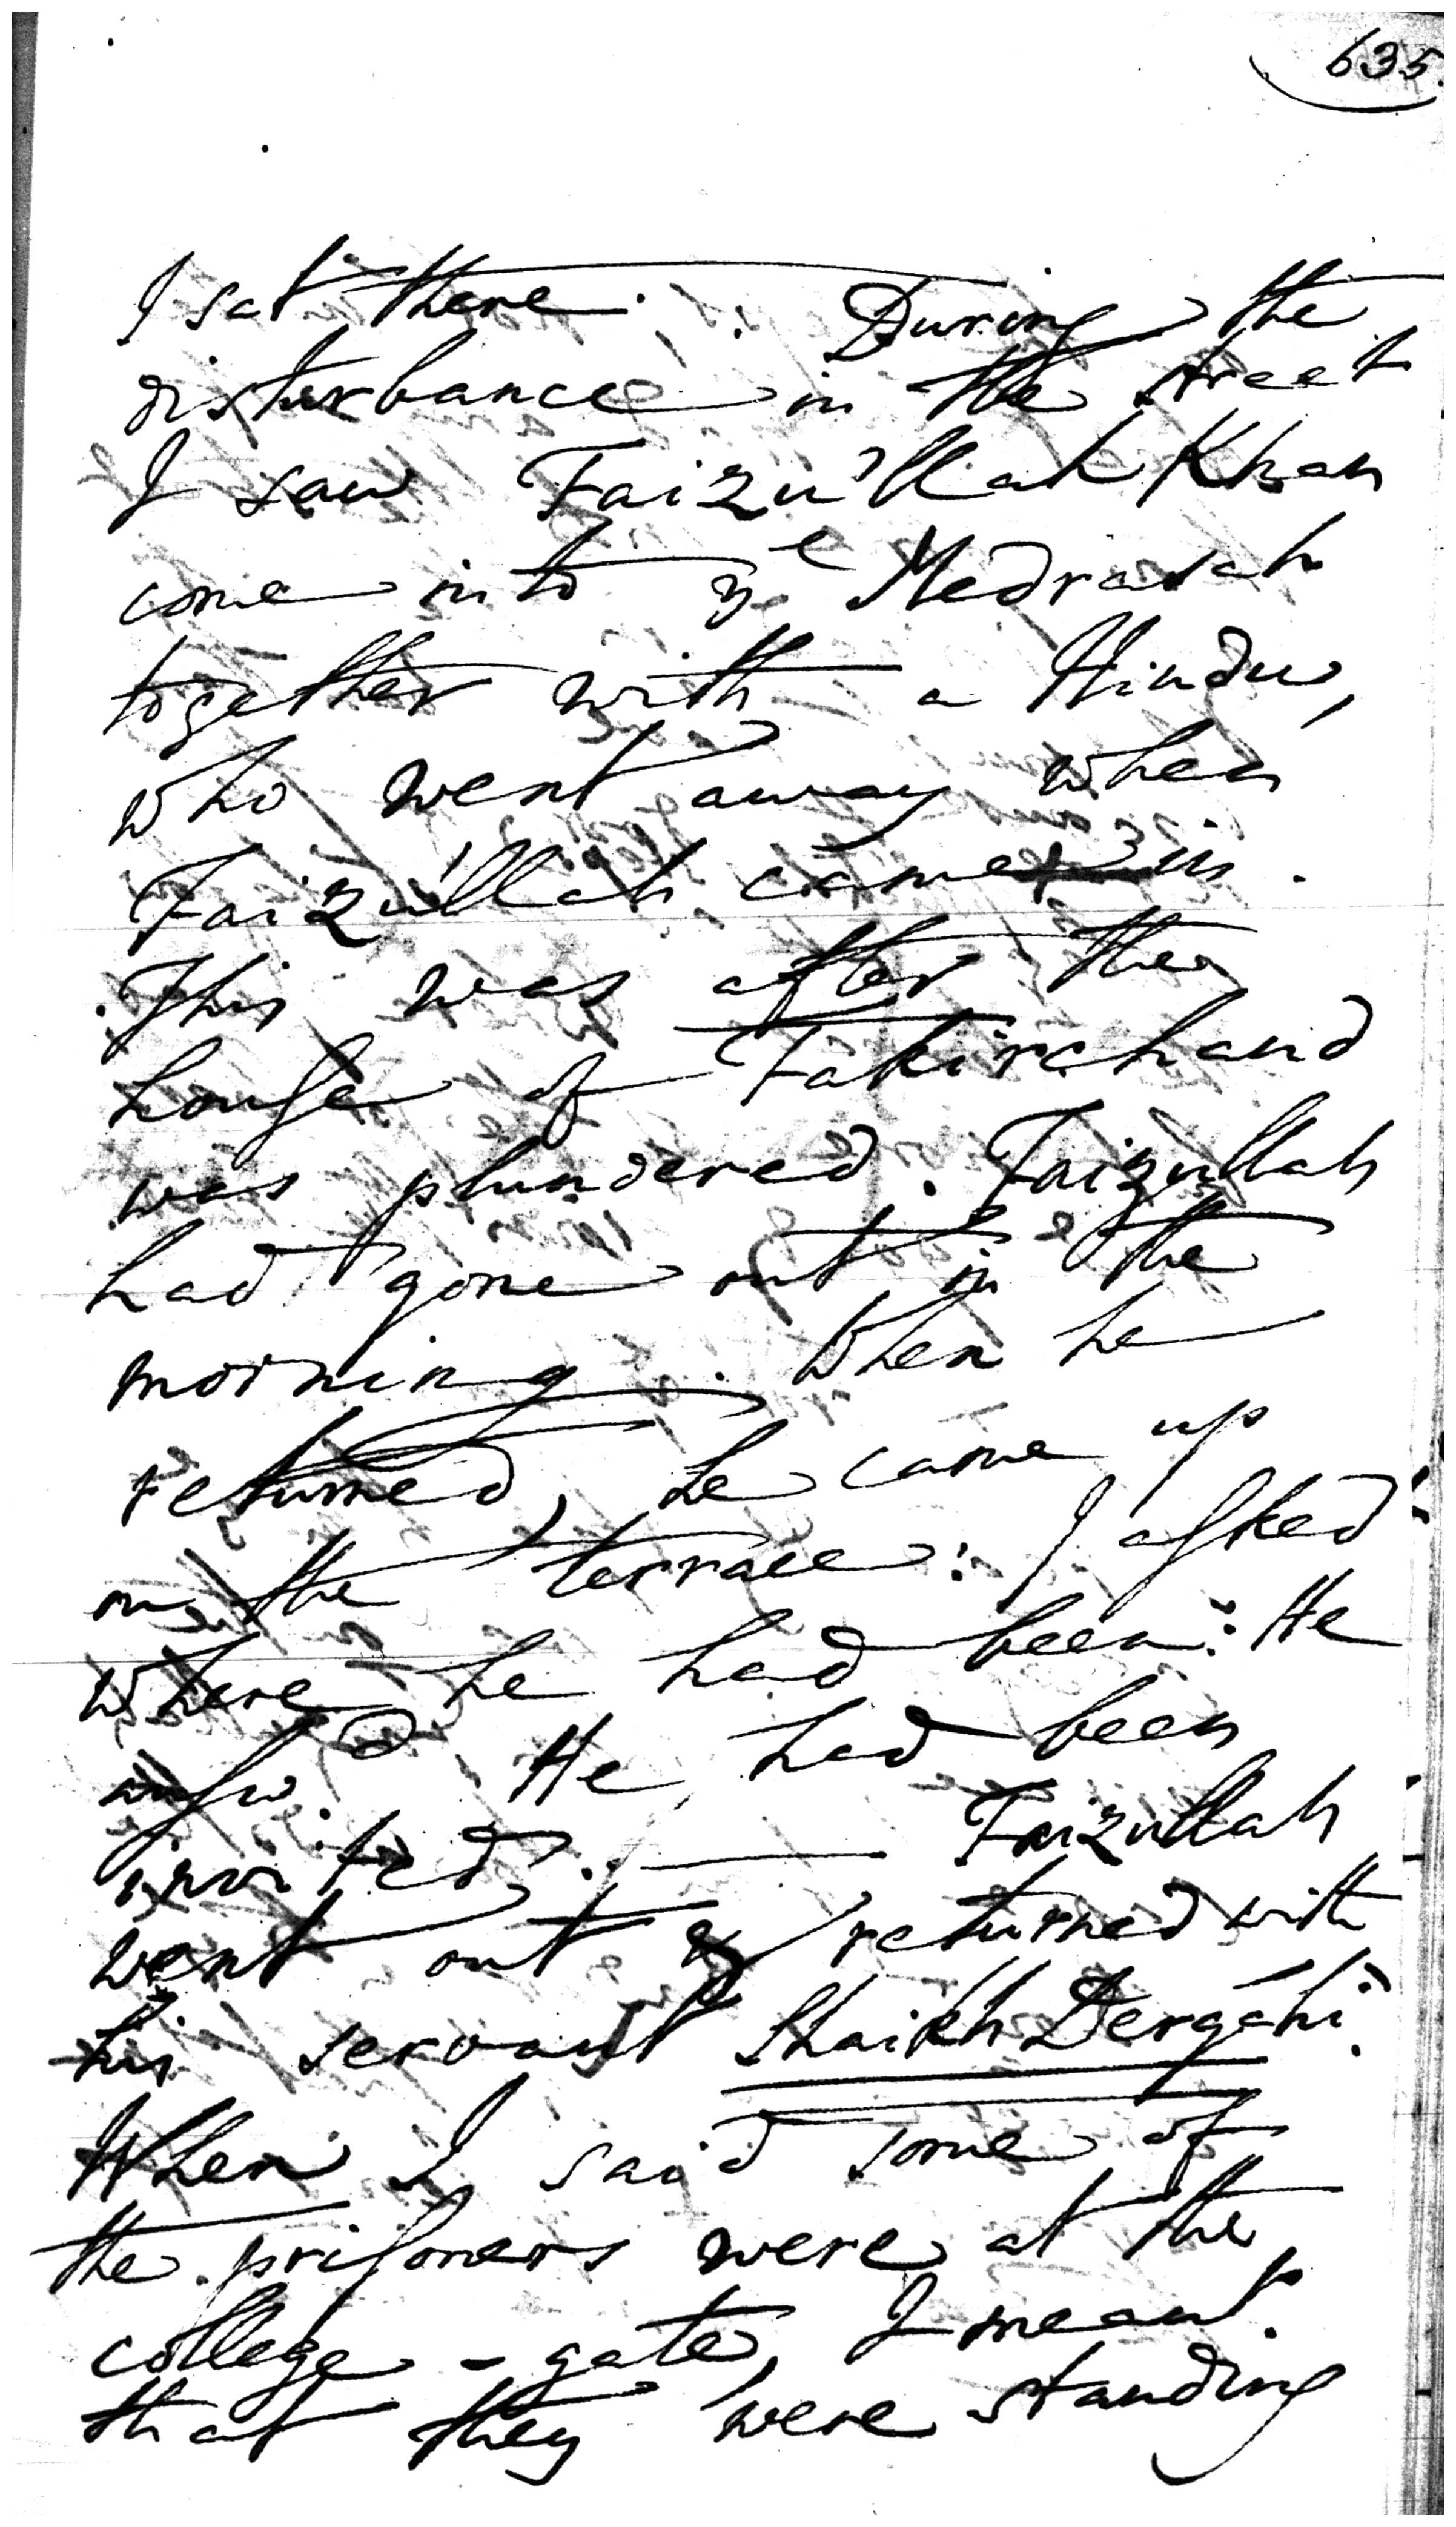 635.
I sat there. During the
disturbance in the street
I saw Faizu'llah Khan
come into yᵉ Medrasah
together with a Hindu,
who went away when
Faizu'llah came in.
This was after the
house of Fakirchand
was plundered. Faizullah
had gone out in the
morning. When he
returned, he came up
on the terrace: I asked
where he had been: He
answᵈ. He had been
invited. — Faizullah
went out & returned with
his servant Shaikh Dergáhi.
When I said some of
the prisoners were at the
college-gate, I meant
that they were standing